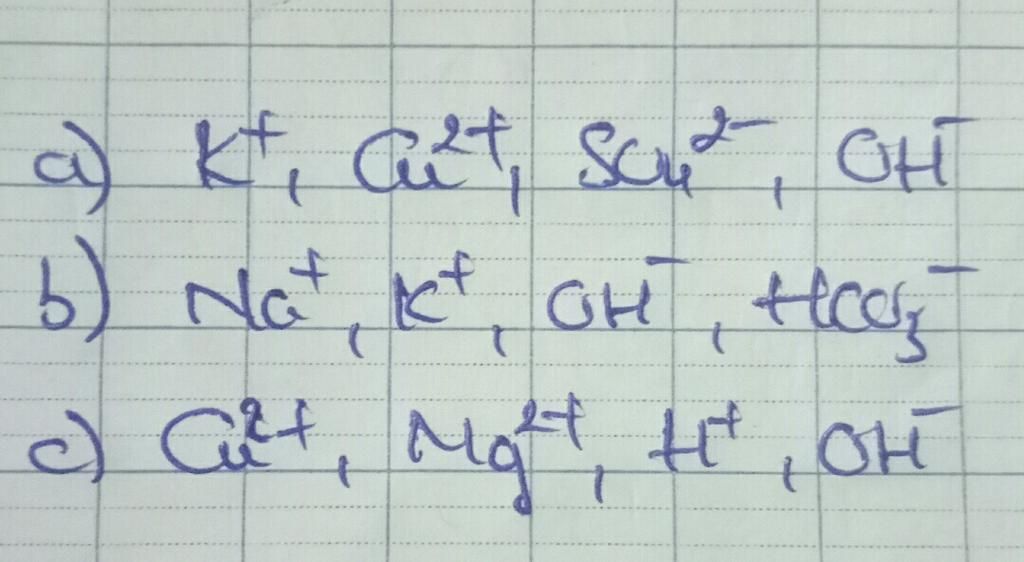 a) K⁺, Cu²⁺, SO₄²⁻, OH⁻
b) Na⁺, K⁺, OH⁻, HCO₃⁻
c) Cu²⁺, Mg²⁺, H⁺, OH⁻